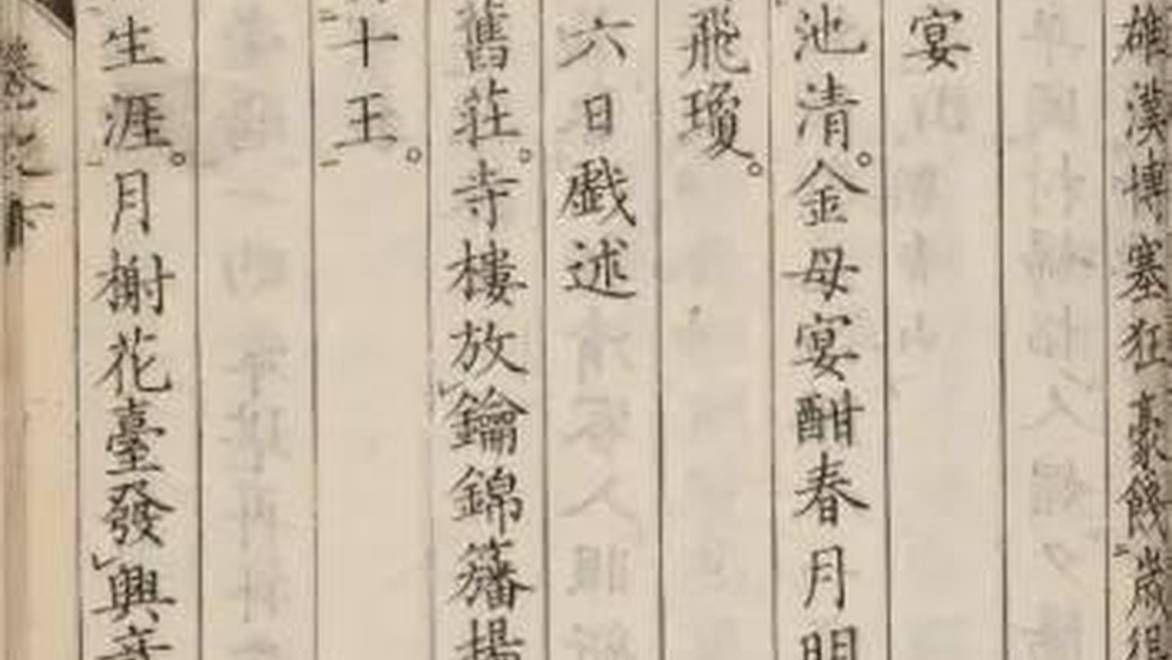 雄漢博塞狂豪餞歲
宴
池清。金母宴酣春月明
飛瓊。
六日戯述
舊莊。寺樓放鑰錦籓揚
十王。
生涯。月榭花臺發興
卷之下